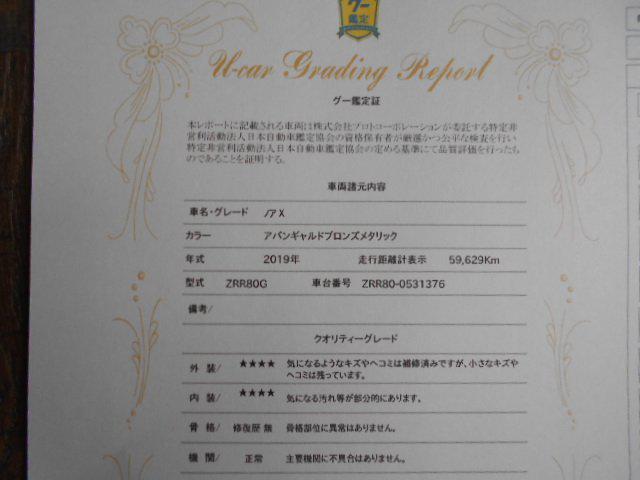 グー
鑑定
U-car Grading Report
グー鑑定証
本レポートに記載される車両は株式会社プロトコーポレーションが委託する特定非
営利活動法人日本自動車鑑定協会の資格保有者が厳選かつ公平な検査を行い
特定非営利活動法人日本自動車鑑定協会の定める基準にて品質評価を行ったも
のであることを証明する。
車両諸元内容
車名・グレード ノア X
カラー アバンギャルドブロンズメタリック
年式 2019年 走行距離計表示 59,629Km
型式 ZRR80G 車台番号 ZRR80-0531376
備考/
クオリティーグレード
外 装/ ★★★★ 気になるようなキズやヘコミは補修済みですが、小さなキズや
ヘコミは残っています。
内 装/ ★★★★ 気になる汚れ等が部分的にあります。
骨 格/ 修復歴 無 骨格部位に異常はありません。
機 関/ 正常 主要機関に不具合はありません。